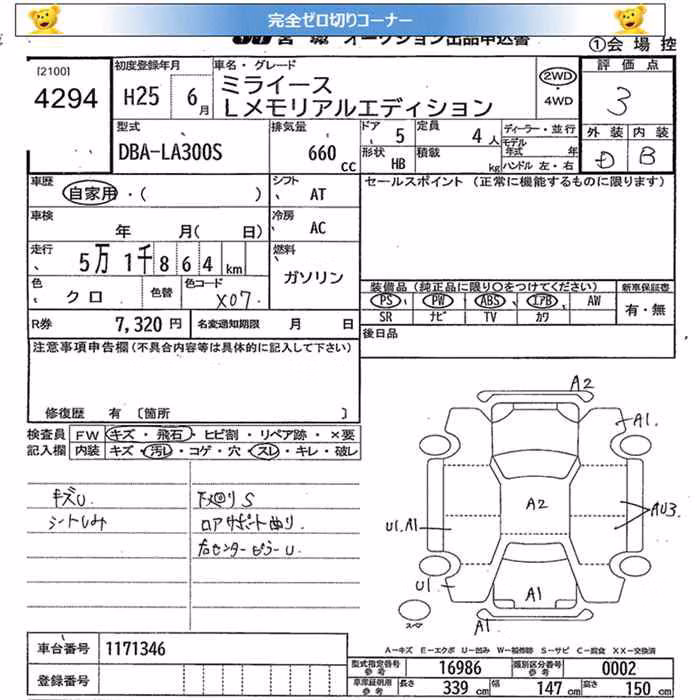 完全ゼロ切りコーナー
オークション出品申込書
①会場控
[2100]
4294
初度登録年月
H25 6月
車名・グレード
ミライース
Lメモリアルエディション
2WD
・
4WD
評価点
3
外装 内装
D B
型式
DBA-LA300S
排気量
660 CC
ドア 5
形状 HB
定員 4人
積載 kg
ディーラー・並行
モデル年式 年
ハンドル 左・右
車歴
自家用・( )
シフト
AT
セールスポイント (正常に機能するものに限ります)
車検
年 月( 日)
冷房
AC
走行
5万1千864km
燃料
ガソリン
色
クロ
色替
色コード
X07
装備品 (純正品に限り○をつけてください)
新車保証書
PS PW ABS エアB AW
SR ナビ TV カワ
有・無
R券 7,320円
名変通知期限 月 日
後日品
注意事項申告欄(不具合内容等は具体的に記入して下さい)
修復歴 有 [箇所 ]
検査員 FW キズ・飛石・ヒビ割・リペア跡・×要
記入欄 内装 キズ・汚レ・コゲ・穴・スレ・キレ・破レ
キズU
シートしみ
下廻りS
ロアサポートぬり
右センターピラーU
A2
A1.
A2
AU3
U1.A1
U1
A1
A1
スペア
A-キズ E-エクボ U-凹み W-補修跡 S-サビ C-腐食 XX-交換済
車台番号 1171346
登録番号
型式指定番号 参考 16986
類別区分番号 参考 0002
車庫証明用 参考 長さ 339cm 幅 147cm 高さ 150cm